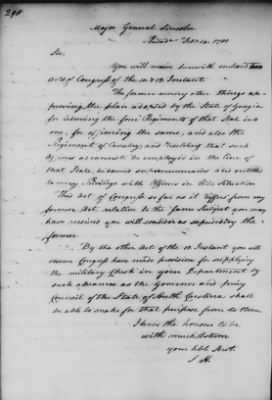 290
Major General Lincoln
Philada Feby 14. 1781
Sir,
You will receive herewith enclosed two
acts of Congress of the 10 & 12 Instant.
The former among other things ap-
proving the plan adopted by the State of Georgia
for reducing the four Regiments of that State into
one, for officering the same, and also the
Regiment of Cavalry, and resolving that such
Officers as cannot be employed in the line of
that State become supernumeraries and entitled
to every Privilege with Officers in like Situation
This act of Congress so far as it differs from any
former Act relative to the same Subject you may
have received you will consider as superseding the
former.
By the other Act of the 12 Instant you will
observe Congress have made provision for supplying
the military Chest in your Department by
such advances as the Governor and privy
Council of the State of South Carolina shall
be able to make for that purpose from to time
I have the honour to be
with much Esteem
your hble Servt.
S. H.